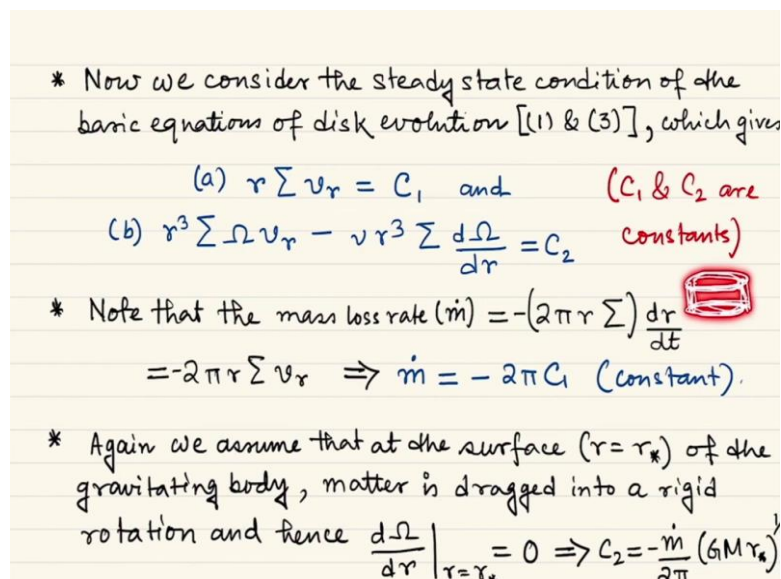 * Now we consider the steady state condition of the
basic equations of disk evolution [(1) & (3)], which gives
(a) r Σ v_r = C_1 and (C_1 & C_2 are
(b) r^3 Σ Ω v_r − ν r^3 Σ dΩ/dr = C_2 constants)
* Note that the mass loss rate (ṁ) = −(2π r Σ) dr/dt
= −2π r Σ v_r ⇒ ṁ = − 2π C_1 (constant).
* Again we assume that at the surface (r = r_*) of the
gravitating body, matter is dragged into a rigid
rotation and hence dΩ/dr |_{r=r_*} = 0 ⇒ C_2 = −ṁ/2π (GM r_*)